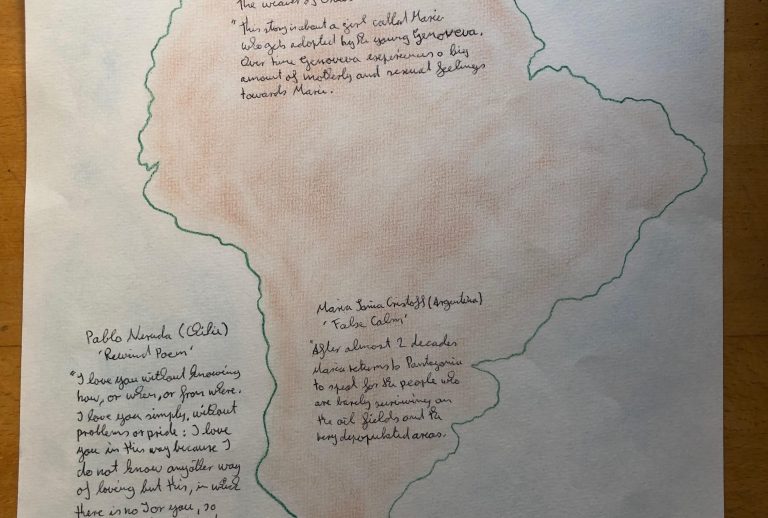 The weaver of
"This story is about a girl called Marie
who gets adopted by the young Genoveva.
Over time Genoveva experiences a big
amount of motherly and sexual feelings
towards Marie.
Maria Sonia Cristoff (Argentina)
'False Calm'
"After almost 2 decades
Maria returns to Pantagonia
to speat for the people who
are barely surviving on
the oil fields and the
very depopulated areas.
Pablo Neruda (Chile)
'Rewind Poem'
"I love you without knowing
how, or when, or from where.
I love you simply, without
problems or pride: I love
you in this way because I
do not know any other way
of loving but this, in which
there is no I or you, so,